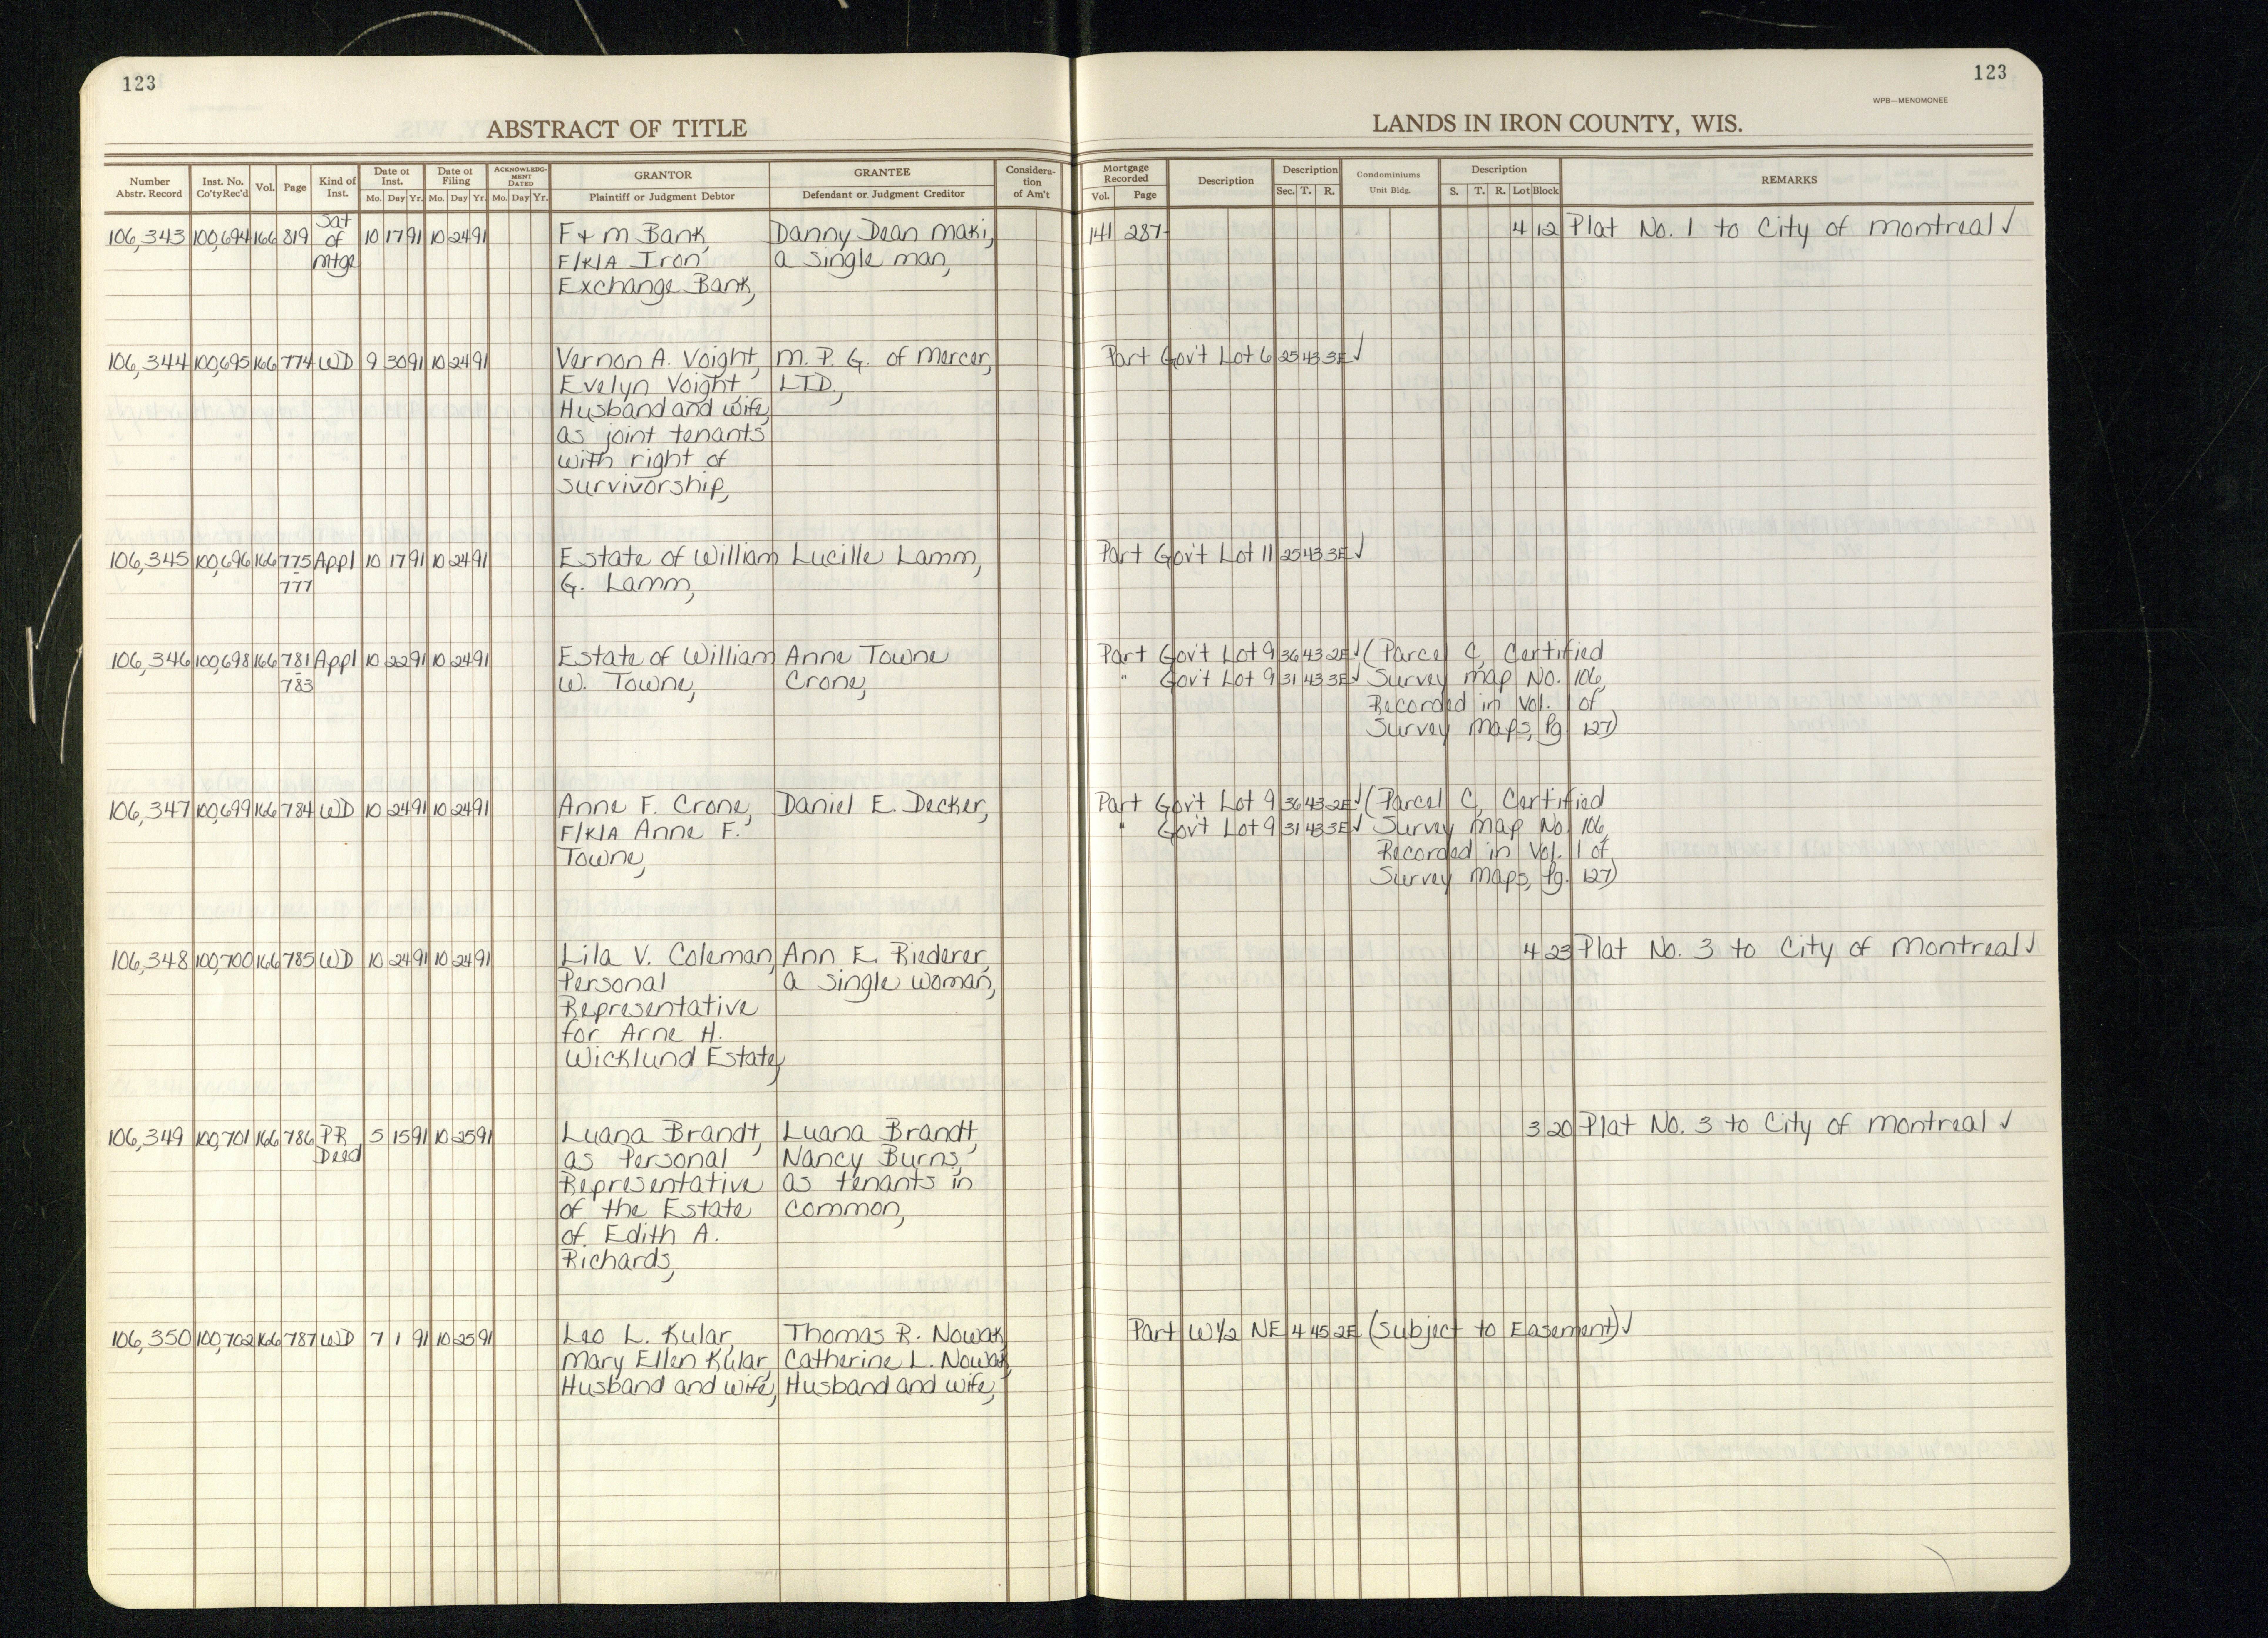 123
123
WPB—MENOMONEE
ABSTRACT OF TITLE
LANDS IN IRON COUNTY, WIS.
Number Abstr. Record | Inst. No. Co'ty Rec'd | Vol. | Page | Kind of Inst. | Date of Inst. Mo. Day Yr. | Date of Filing Mo. Day Yr. | ACKNOWLEDGMENT DATED Mo. Day Yr. | GRANTOR Plaintiff or Judgment Debtor | GRANTEE Defendant or Judgment Creditor | Consideration of Am't | Mortgage Recorded Vol. Page | Description | Description Sec. T. R. | Condominiums Unit Bldg. | Description S. T. R. Lot Block | REMARKS
106,343 100,694 166 819 Sat of Mtge 10 17 91 10 24 91 F & M Bank, Danny Dean Maki, 141 287 4 12 Plat No. 1 to City of Montreal ✓
F/K/A Iron a single man,
Exchange Bank,
106,344 100,695 166 774 WD 9 30 91 10 24 91 Vernon A. Voight, M. P. G. of Mercer, Part Gov't Lot 6 25 43 3E ✓
Evelyn Voight LTD.,
Husband and wife,
as joint tenants
with right of
survivorship,
106,345 100,696 166 775 Appl 10 17 91 10 24 91 Estate of William Lucille Lamm, Part Gov't Lot 11 25 43 3E ✓
- 777 G. Lamm,
106,346 100,698 166 781 Appl 10 22 91 10 24 91 Estate of William Anne Towne Part Gov't Lot 9 36 43 2E ✓ (Parcel C, Certified
- 783 W. Towne, Crone, " Gov't Lot 9 31 43 3E ✓ Survey Map No. 106,
Recorded in Vol. 1 of
Survey Maps, Pg. 127)
106,347 100,699 166 784 WD 10 24 91 10 24 91 Anne F. Crone, Daniel E. Decker, Part Gov't Lot 9 36 43 2E ✓ (Parcel C, Certified
F/K/A Anne F. " Gov't Lot 9 31 43 3E ✓ Survey Map No. 106,
Towne, Recorded in Vol. 1 of
Survey Maps, Pg. 127)
106,348 100,700 166 785 WD 10 24 91 10 24 91 Lila V. Coleman, Ann E. Riederer, 4 23 Plat No. 3 to City of Montreal ✓
Personal a single woman,
Representative
for Arne H.
Wicklund Estate,
106,349 100,701 166 786 PR Deed 5 15 91 10 25 91 Luana Brandt, Luana Brandt, 3 20 Plat No. 3 to City of Montreal ✓
as Personal Nancy Burns,
Representative as tenants in
of the Estate common,
of Edith A.
Richards,
106,350 100,702 166 787 WD 7 1 91 10 25 91 Leo L. Kular, Thomas R. Nowak, Part W1/2 NE 4 45 2E (Subject to Easement) ✓
Mary Ellen Kular, Catherine L. Nowak,
Husband and wife, Husband and wife,